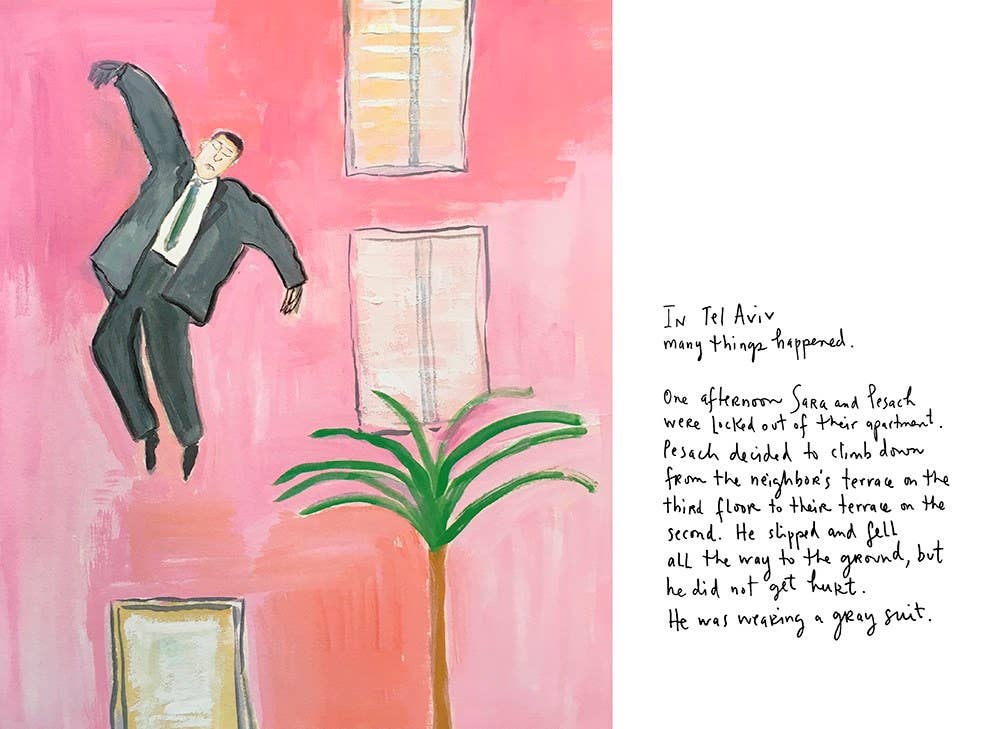 In Tel Aviv
many things happened.
One afternoon Sara and Pesach
were locked out of their apartment.
Pesach decided to climb down
from the neighbor's terrace on the
third floor to their terrace on the
second. He slipped and fell
all the way to the ground, but
he did not get hurt.
He was wearing a gray suit.